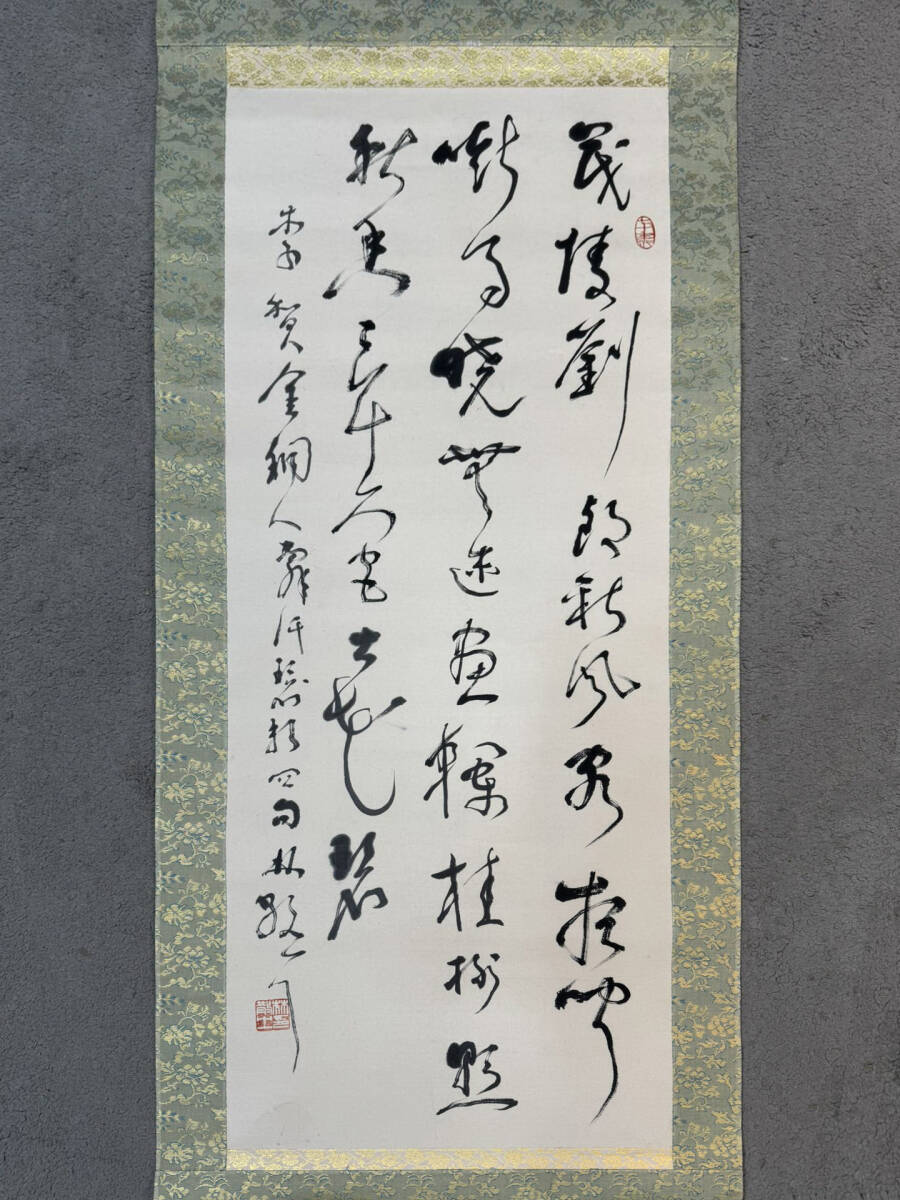 茂陵劉郎秋風客夜聞
嘶馬曉無迹畫欄桂樹懸
秋香三十六宮土花碧
李賀金銅人辭漢歌 四句 林